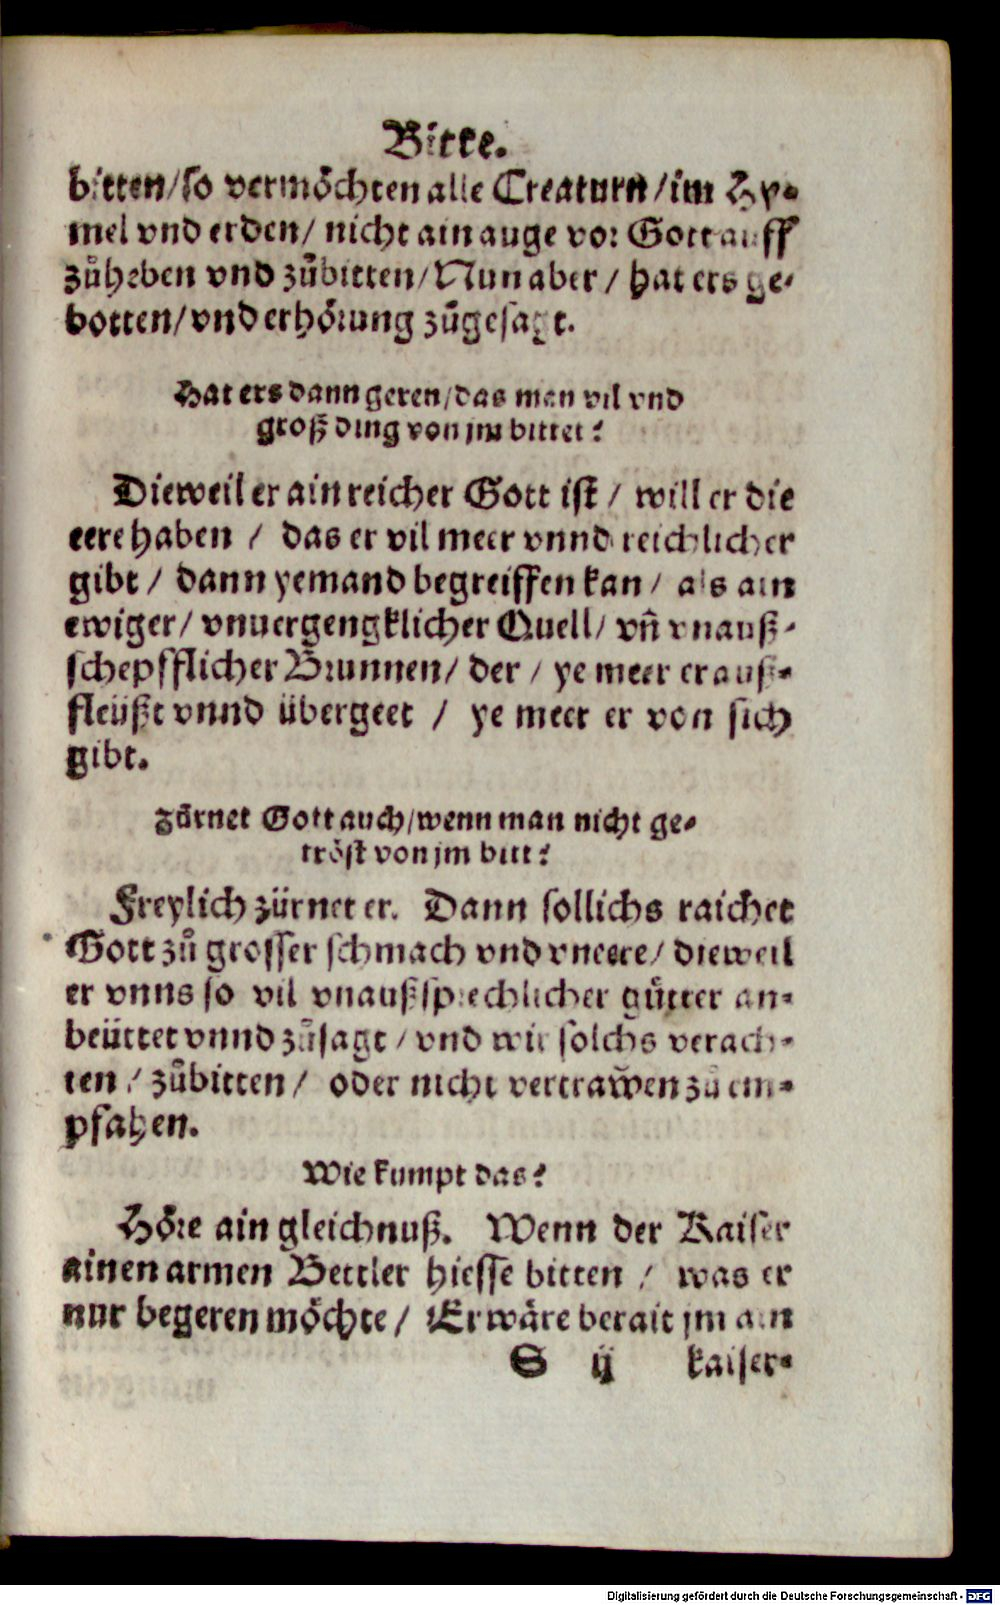 Bitte.
bitten/so vermöchten alle Creaturn/im Hy-
mel vnd erden/ nicht ain auge vor Gott auff
zůheben vnd zůbitten/Nun aber/ hat ers ge-
botten/vnd erhörung zůgesagt.
Hat ers dann geren/das man vil vnd
groß ding von jm bittet?
Dieweil er ain reicher Gott ist/ will er die
eere haben/ das er vil meer vnnd reichlicher
gibt/ dann yemand begreiffen kan/ als ain
ewiger/ vnuergengklicher Quell/ vn̄ vnauß-
schepfflicher Brunnen/ der/ ye meer er auß-
fleüßt vnnd übergeet/ ye meer er von sich
gibt.
Zürnet Gott auch/wenn man nicht ge-
tröst von jm bitt?
Freylich zürnet er. Dann sollichs raichet
Gott zů grosser schmach vnd vneere/ dieweil
er vnns so vil vnaußsprechlicher gůtter an-
beüttet vnnd zůsagt/ vnd wir solchs verach-
ten/ zůbitten/ oder nicht vertrawen zů em-
pfahen.
Wie kumpt das?
Höre ain gleichnuß. Wenn der Kaiser
ainen armen Bettler hiesse bitten/ was er
nur begeren möchte/ Er wäre berait jm ain
S ij kaiser-
Digitalisierung gefördert durch die Deutsche Forschungsgemeinschaft - DFG